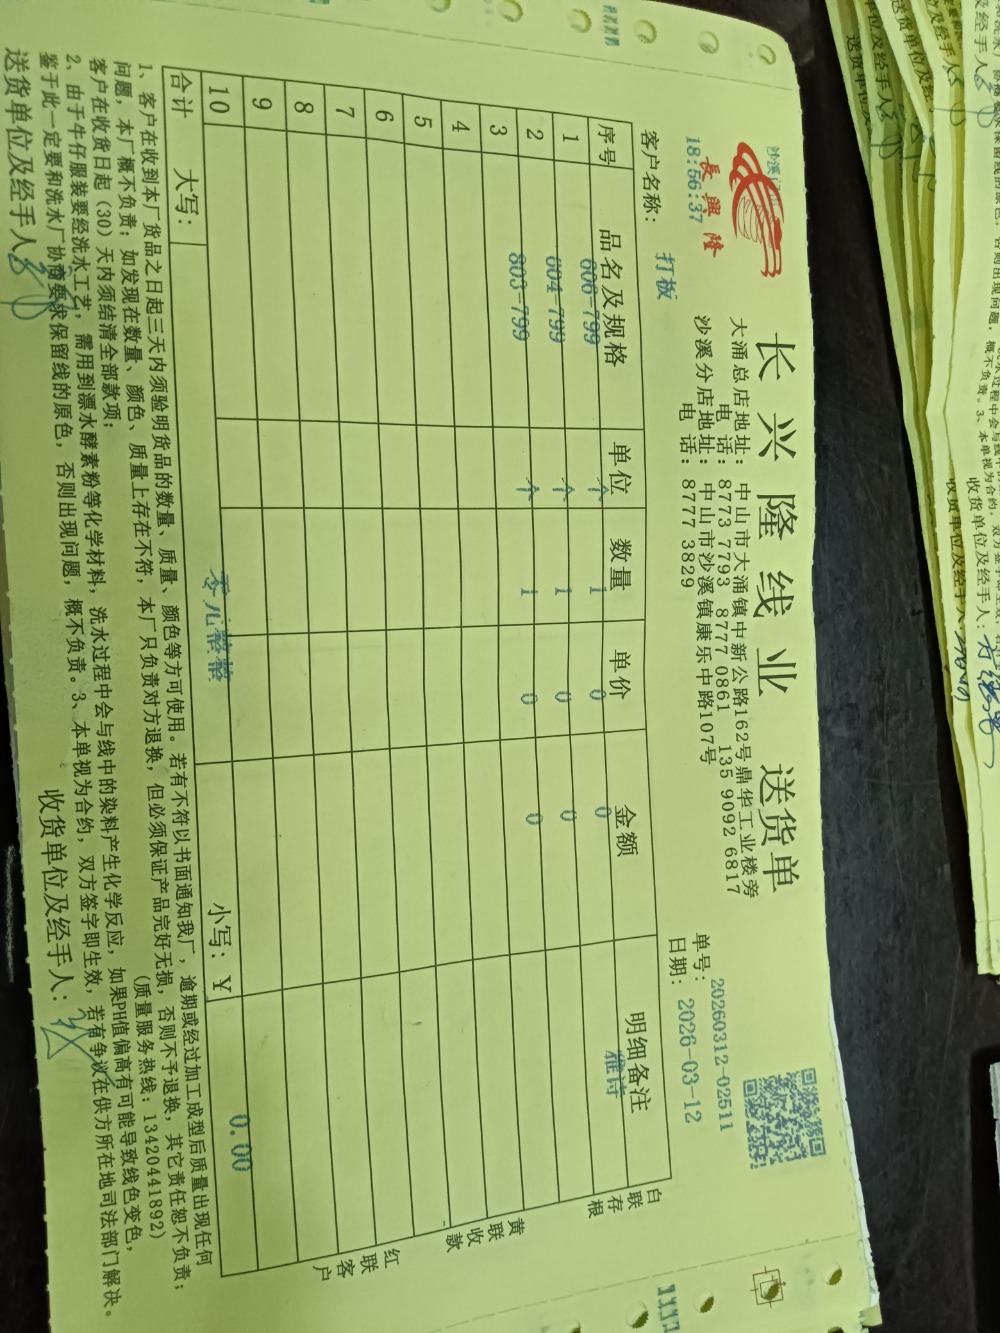 长兴隆线业 送货单
長興隆
18:56:37
大涌总店地址: 中山市大涌镇中新公路162号鼎华工业楼旁
电 话: 8773 7793 8777 0861 135 9092 6817
沙溪分店地址: 中山市沙溪镇康乐中路107号
电 话: 8777 3829
单号: 20260312-02511
日期: 2026-03-12
客户名称: 打板
序号 品名及规格 单位 数量 单价 金额 明细备注
606-799 个 1 0 0 雅诗
1 604-799 个 1 0 0
2 803-799 个 1 0 0
3
4
5
6
7
8
9
10 零元整整 0.00
合计 大写: 小写: ¥
白联存根
黄联收款
红联客户
1、客户在收到本厂货品之日起三天内须验明货品的数量、质量、颜色等方可使用。若有不符以书面通知我厂，逾期或经过加工成型后质量出现任何
问题，本厂概不负责；如发现在数量、颜色、质量上存在不符，本厂只负责对方退换，但必须保证产品完好无损，否则不予退换，其它责任恕不负责；
客户在收货日起（30）天内须结清全部款项； (质量服务热线: 13420441892)
2、由于牛仔服装要经洗水工艺，需用到漂水酵素粉等化学材料，洗水过程中会与线中的染料产生化学反应，如果PH值偏高有可能导致线色变色，
鉴于此一定要和洗水厂协商要求保留线的原色，否则出现问题，概不负责。3、本单视为合约，双方签字即生效，若有争议在供方所在地司法部门解决。
送货单位及经手人 收货单位及经手人:
收货单位及经手人:
收货单位及经手人
送货单位及经手人